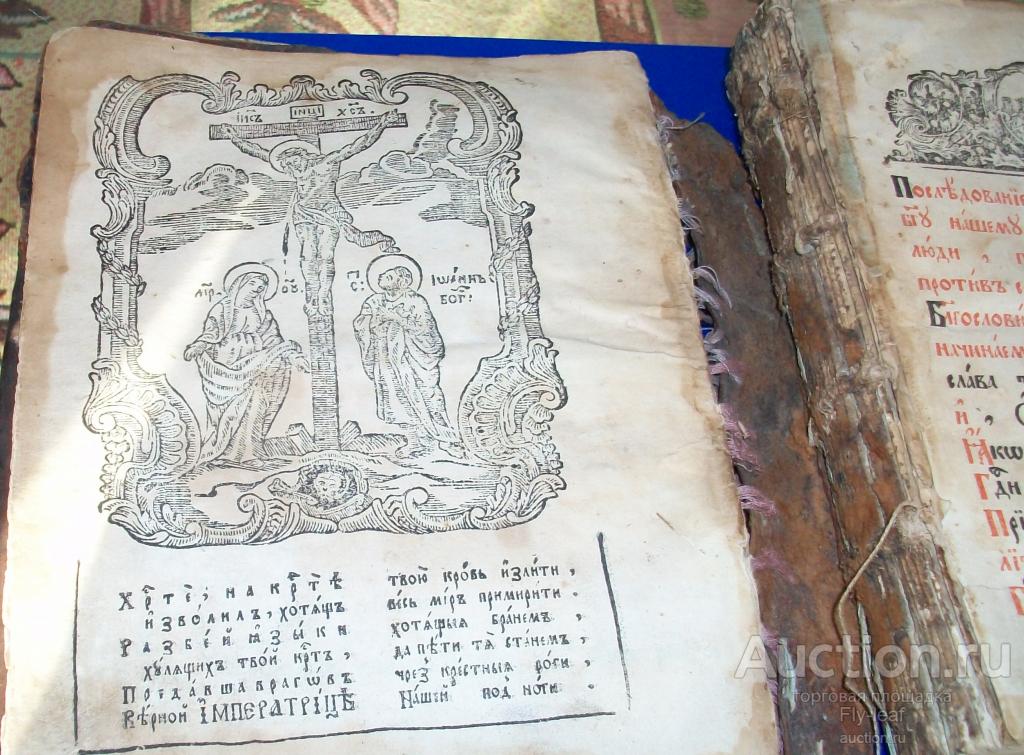 І҆И҃СЪ І҆НЦІ ХС҃Ъ
МТР҃ ѲУ҃
ІѠАННЪ
БОГ:
Хрⷭ҇те, на крⷭ҇тѣ
изволилъ, хотѧщъ
Разбей ѩзыки
хулящихъ твой крⷭ҇тъ,
Предавша враговъ
Вѣрной ІМПЕРАТРІЦѢ
твою кровь излїти,
весь мїръ примирити.
хотѧщыѧ бранемъ,
да пѣти тѧ станемъ,
чрез крестныя роги,
Нашей под ноги.
Послѣдованїе
бг҃у нашему
люди,
противъ
начинаем
слава
Auction.ru
торговая площадка
Fly-leaf
auction.ru